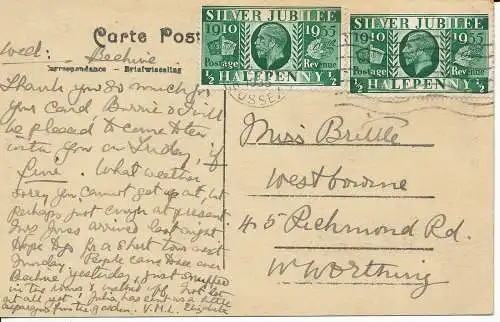 Carte Post
Correspondance - Briefwisseling
SILVER JUBILEE
1910 1935
Postage Revenue
½ HALFPENNY ½
SILVER JUBILEE
1910 1935
Postage Revenue
½ HALFPENNY ½
SUSSEX
Wed: Beehive
Thank you so much for
your card & will
be pleased to come to tea
with you on Friday, if
fine. What weather
sorry you cannot get up at, but
Perhaps just enough at present.
Mrs Jones arrived last night
Hope to go for a short tour next
Sunday. People came to see over
Beehive yesterday, just sniffed
in the rooms & walked off, not hot
at all yet! Julia has sent us a little
asparagus from the garden. V.M.L.
Miss Brittle
Westbourne
45 Richmond Rd.
W. Worthing